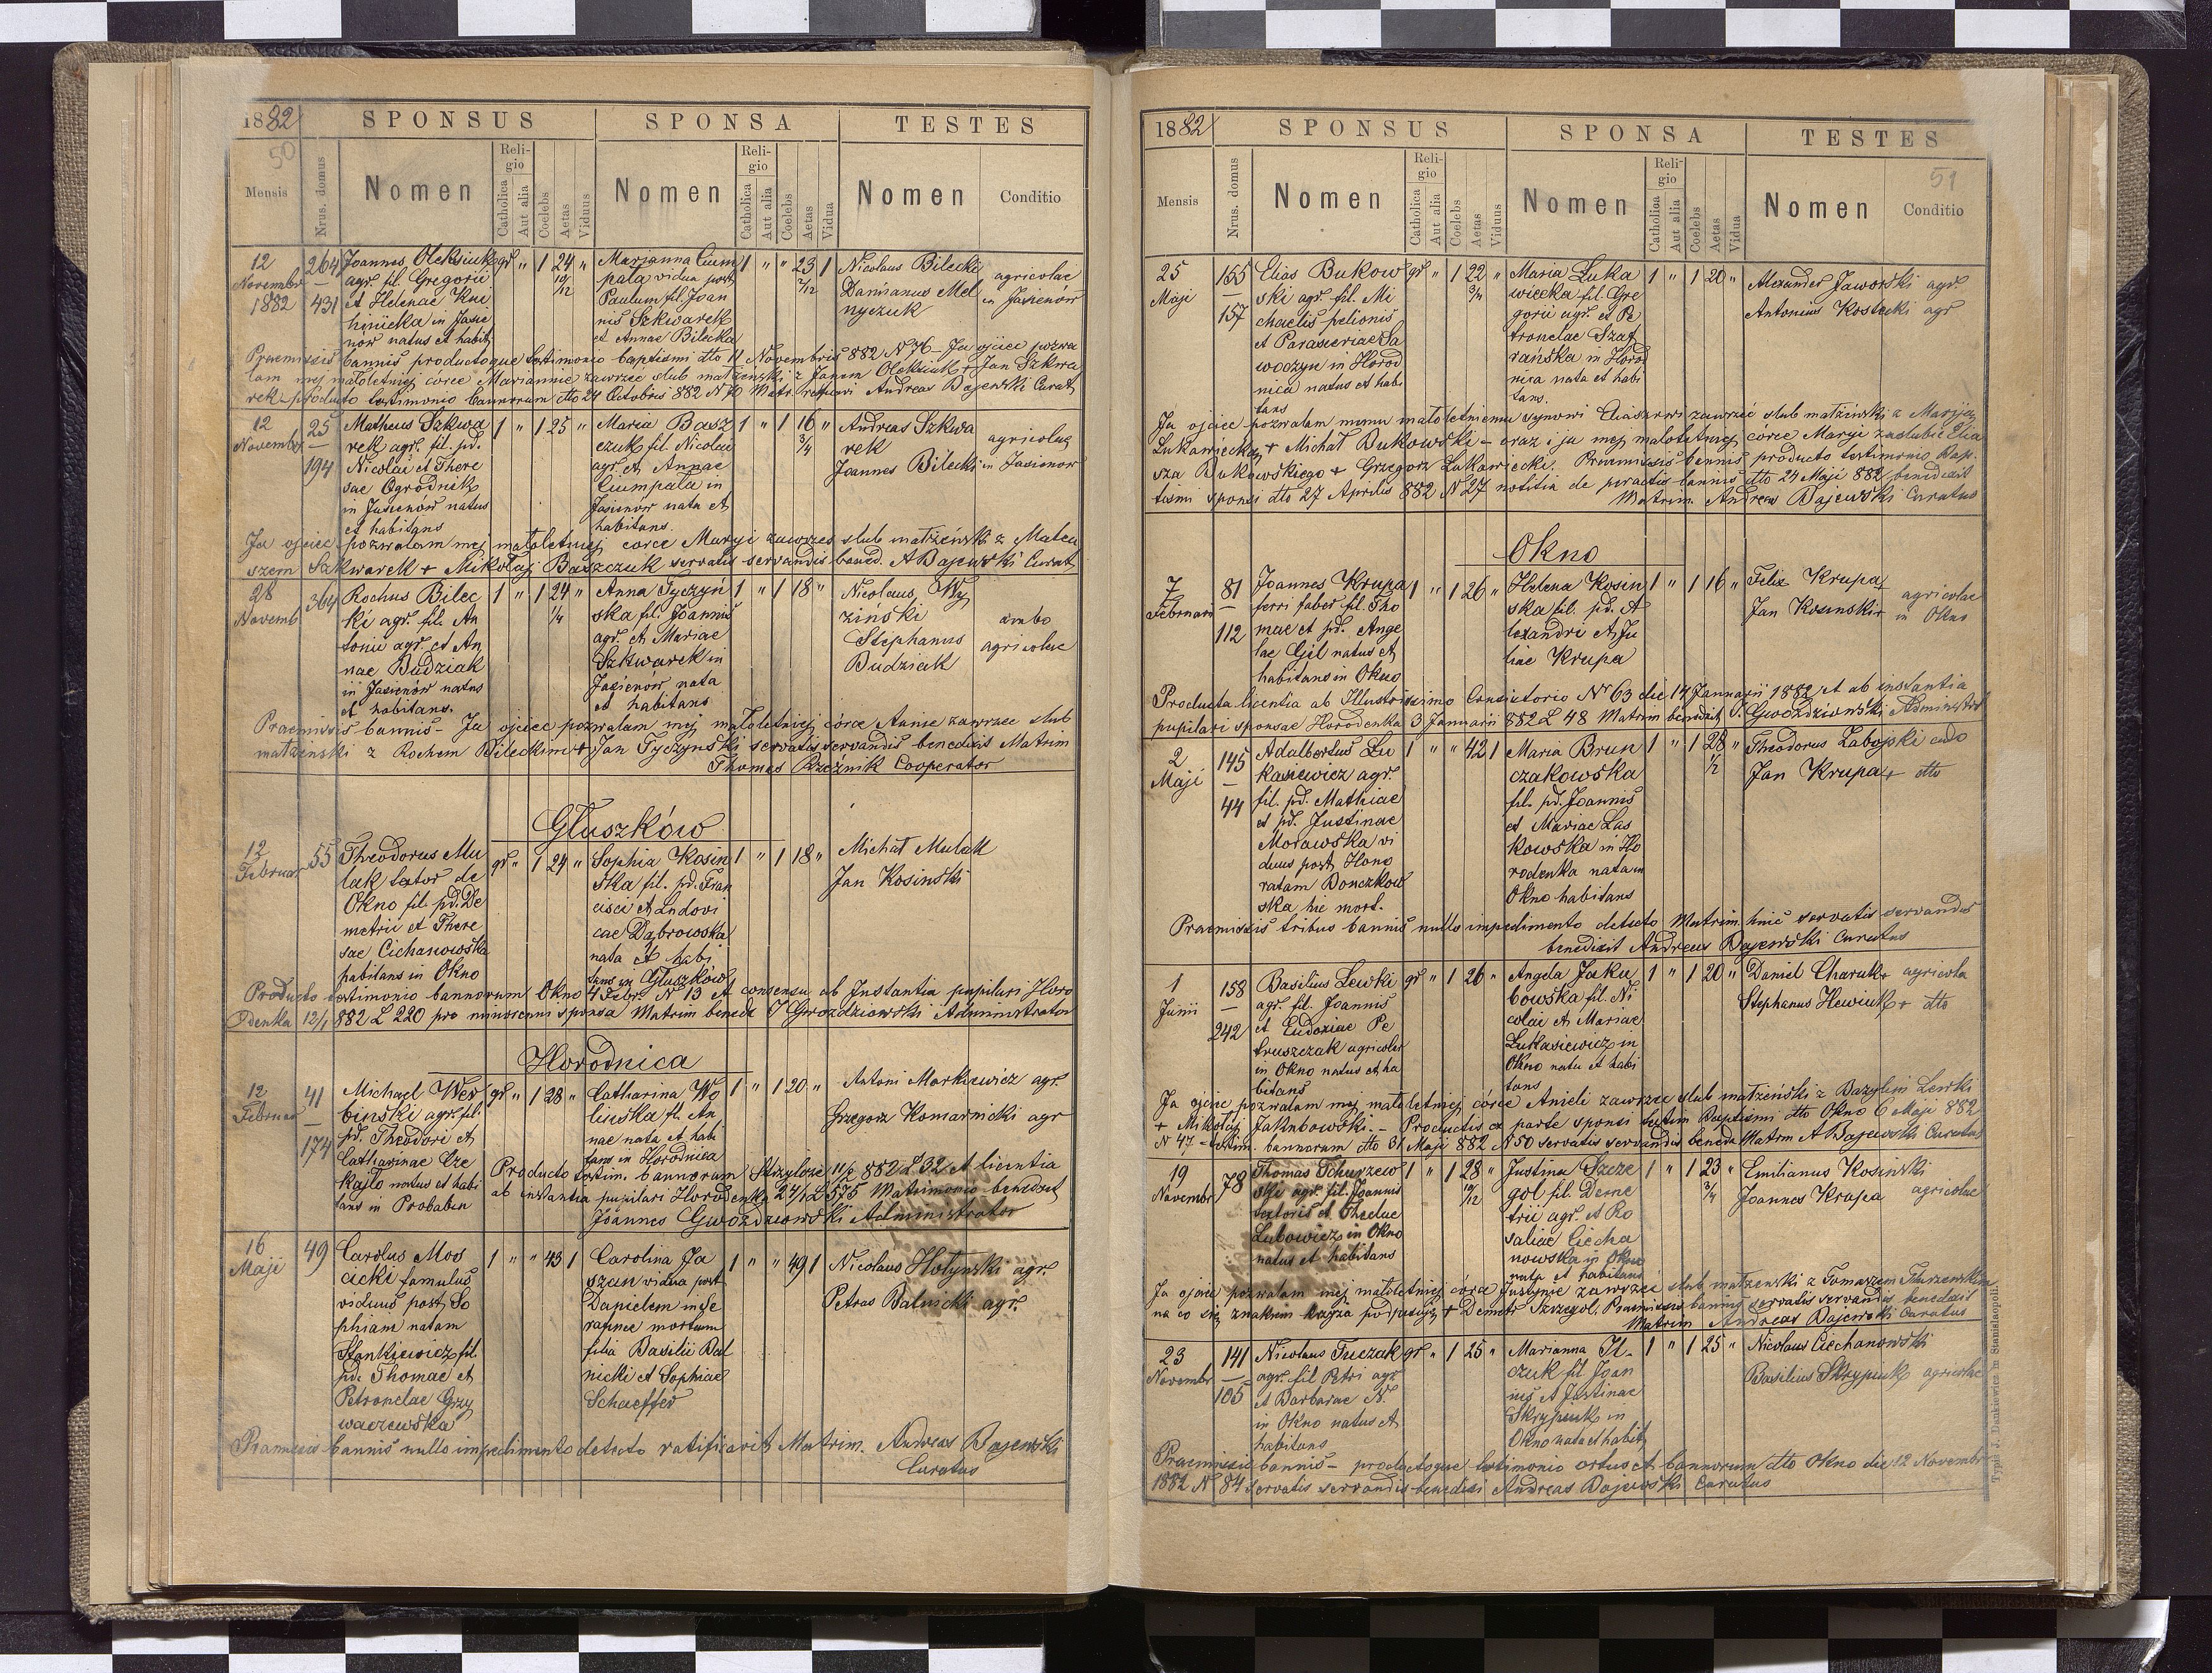 1882
SPONSUS SPONSA TESTES
50
Mensis Nrus. domus Nomen Religio Catholica Aut alia Coelebs Aetas Viduus Nomen Religio Catholica Aut alia Coelebs Aetas Vidua Nomen Conditio
12 Novembr 1882
264
431
Joannes Oleksiuk
agr. fil. Gregorii
et Helenae Kni
hinicka in Jasie
nów natus et habit
gr " 1 24 10/12 "
Marianna Cium
pała vidua post
Paulum fil. Joan
nis Szkwarek
et Annae Bilecka
1 " " 23 7/12 1
Nicolaus Bilecki
Damianus Mel
nyczuk
agricolae
in Jasienów
Praemissis bannis productoque testimonio baptismi dto 11 Novembris 882 N 76 – Ja ojciec pozwa
lam mej małoletniej córce Mariannie zawrzeć ślub małżenski z Janem Oleksiuk + Jan Szkwa
rek – producto testimonio bannorum dto 24 Octobris 882 N 70 Matr. Andreas Bajewski Curat
12 Novembr
25
194
Matheus Szkwa
rek agr. fil. pd.
Nicolai et There
sae Ogrodnik
in Jasienów natus
et habitans
1 " 1 25 "
Maria Basz
czuk fil. Nicolai
agr. et Annae
Ciumpała in
Jasienow nata et
habitans.
1 " 1 16 3/4 "
Andreas Szkwa
rek
Joannes Bilecki
agricolae
in Jasienow
Ja ojciec pozwalam mej małoletniej córce Maryi zawrzeć slub małżeński z Mateu
szem Szkwarek + Mikołaj Baszczuk servatis servandis bened. A Bajewski Curat
28 Novemb
364
Rochus Bilec
ki agr. fil. An
tonii agr. et An
nae Budziak
in Jasienów natus
et habitans.
1 " 1 24 1/4 "
Anna Tyczyń
ska fil. Joannis
agr. et Mariae
Szkwarek in
Jasienów nata
et habitans
1 " 1 18 "
Nicolaus Wy
ziński
Stephanus
Budziak
ambo
agricolae
Praemissis bannis – Ja ojciec pozwalam mej małoletniej córce Annie zawrzec slub
małżenski z Rochem Bileckim + Jan Tyczynski servatis servandis benedixit Matrim
Thomas Rzeźnik Cooperator
Głuszków
12 Februar
55
Theodorus Mu
lak sator de
Okno fil. pd. De
metrii et There
sae Cichanowska
habitans in Okno
gr " 1 24 "
Sophia Kosin
ska fil. pd. Fran
cisci et Ludovi
cae Dąbrowska
nata et habi
tans in Głuszków
1 " 1 18 "
Michał Mulak
Jan Kosinski
Producto testimonio bannorum Okno 4 Febr. N 13 et consensu ab Instantia pupilari Horo
denka 12/1 882 L 220 pro minorenni sponsa Matrim bened. J Gwozdziowski Administrator
Horodnica
12 Februar
41
174
Michael Wer
binski agr. fil.
pd. Theodori et
Catharinae Cze
kajlo natus et habi
tans in Probabin
gr " 1 28 "
Catharina Wo
linska fil. An
nae nata et habi
tans in Horodnica
1 " 1 20 "
Antoni Markiewicz agr.
Grzegorz Komarnicki agr
Producto testim. bannorum Strzylcze 11/2 882 L 32 et licentia
ab instantia pupilari Horodenka 24/1 L 575 Matrimonio benedixit
Joannes Gwozdziowski Administrator
16 Maji
49
Carolus Mos
cicki famulus
viduus post So
phiam natam
Stankiewicz fil.
pd. Thomae et
Petronelae Grzy
waczewska
1 " " 43 1
Carolina Ja
szan vidua post
Danielem in Se
rafince mortuum
filia Basilii Bal
nicki et Sophiae
Schaeffer
1 " " 49 1
Nicolaus Hołynski agr.
Petrus Balnicki agr.
Praemissis bannis nullo impedimento detecto ratificavit Matrim. Andreas Bajewski
Curatus
1882
SPONSUS SPONSA TESTES
51
Mensis Nrus. domus Nomen Religio Catholica Aut alia Coelebs Aetas Viduus Nomen Religio Catholica Aut alia Coelebs Aetas Vidua Nomen Conditio
25 Maji
155
157
Elias Bukow
ski agr. fil. Mi
chaelis pelionis
et Parasceviae Sa
woczyn in Horod
nica natus et habi
tans
gr " 1 22 "
Maria Łuka
wiecka fil. Gre
gorii agr. et Pe
tronelae Szaf
rańska in Horod
nica nata et habi
tans.
1 " 1 20 "
Alexander Jaworski agr
Antonius Kostecki agr
Ja ojciec pozwalam memu małoletniemu synowi Eliaszowi zawrzeć slub małżeński z Maryją
Łukawiecką + Michał Bukowski – oraz i ja mej małoletniej córce Maryi zaslubić Elia
sza Bukowskiego + Grzegorz Łukawiecki. Praemissis bannis producto testimonio Bap.
tismi sponsi dto 27 Aprilis 882 N 27 notitia de peractis bannis dto 24 Maji 882 benedixit
Matrim. Andreas Bajewski Curatus
Okno
7 Februarii
81
112
Joannes Krupa
ferri faber fil. Tho
mae et pd. Ange
lae Gil natus et
habitans in Okno
1 " 1 26 "
Helena Kosin
ska fil. pd. A
lexandri et Ju
liae Krupa
1 " 1 16 "
Felix Krupa
Jan Kosinski +
agricolae
in Okno
Producta licentia ab Illustrissimo Consistorio Nr 63 die 14 Januarii 1882 et ab instantia
pupilari sponsae Horodenka 3 Januarii 882 L 48 Matrim benedixit J. Gwoździowski Administr
2 Maji
145
44
Adalbertus Łu
kasiewicz agr.
fil. pd. Mathiae
et pd. Justinae
Morawska vi
duus post Hono
ratam Bonczkow
ska hic mort.
1 " " 42 1
Maria Brun
czakowska
fil. pd. Joannis
et Mariae Las
kowska in Ho
rodenka nata in
Okno habitans
1 " 1 28 1/2 "
Theodorus Łabojski
Jan Krupa + dto
Praemissis tribus bannis nullo impedimento detecto Matrim. hinc servatis servandis
benedixit Andreas Bajewski Curatus
1 Junii
158
242
Basilius Lewki
agr. fil. Joannis
et Eudoxiae Pe
truszczak agricolar
in Okno natus et ha
bitans
gr " 1 26 "
Angela Jaku
bowska fil. Ni
colai et Mariae
Łukasiewicz in
Okno nata et habi
tans
1 " 1 20 "
Daniel Charuk + agricola
Stephanus Hewiuk + dto
Ja ojciec pozwalam mej małoletniej córce Anieli zawrzec slub małżeński z Bazylim Lewki
+ Mikołaj Jakubowski. – Productis ex parte sponsi testim Baptismi dto Okno 6 Maji 882
N 47 – testim. bannorum dto 31 Maji 882 N 50 servatis servandis bened. Matrim A Bajewski Curatus
19 Novembr
78
Thomas Tchurzew
ski agr. fil. Joannis
textoris et Theclae
Lubowicz in Okno
natus et habitans
1 " 1 28 10/12 "
Justina Szcze
gol fil. Deme
trii agr. et Ro
saliae Ciecha
nowska in Okno
nata et habitans
1 " 1 23 3/4 "
Emilianus Kosinski
Joannes Krupa
agricolae
Ja ojciec pozwalam mej małoletniej córce Justynie zawrzeć slub małzenski z Tomaszem Tchurzewskim
na co się znakiem krzyża podpisuję + Demetr Szczegol. Praemissis bannis servatis servandis benedixit
Matrim Andreas Bajewski Curatus
23 Novembr
141
105
Nicolaus Tuczak
agr. fil Petri agr
et Barbarae N.
in Okno natus et
habitans
gr " 1 25 "
Marianna Il-
czuk fil Joan
nis et Justinae
Skrypnik in
Okno nata et habit
1 " 1 25 "
Nicolaus Ciechanowski
Basilius Skrypnik agricolae
Praemissis bannis – productoque testimonio ortus et bannorum dto Okno die 12 Novembr
1882 N 84 servatis servandis benedixi Andreas Bajewski Curatus
Typis J. Dankiewicz in Stanislaopoli.